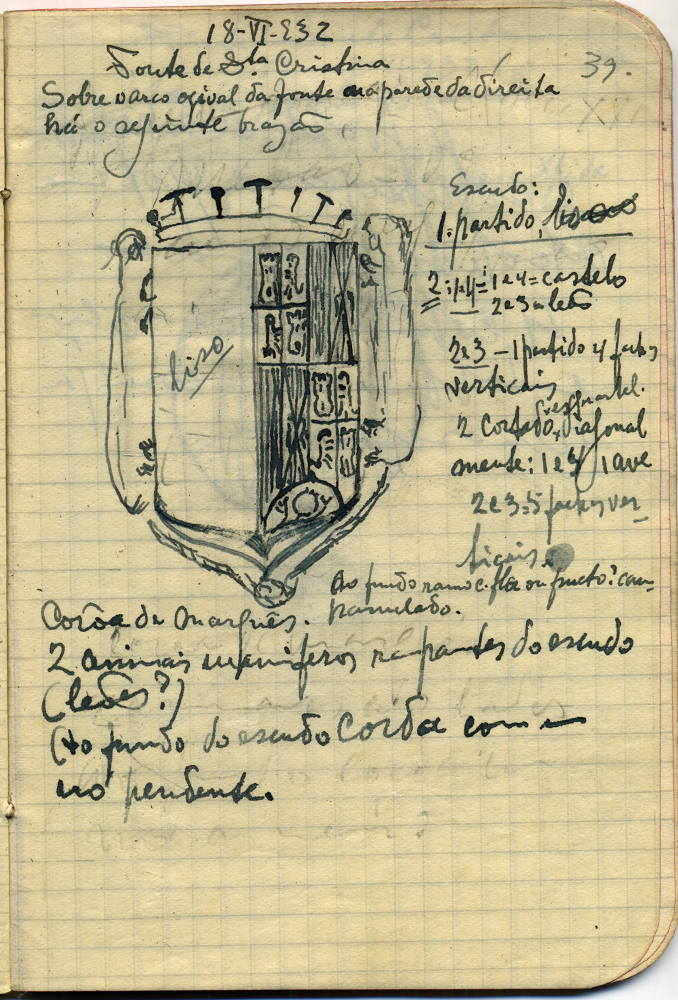 18-VI-932
Fonte de Sta Cristina
39.
Sobre o arco ogival da fonte na parede da direita
há o seguinte brazão
Escudo:
1: partido, liso
2: 1 e 4 = castelo
2 e 3 = leão
2 e 3 – 1 partido 4 fachas
verticais
2 cortado, esquartel.
diagonal
mente: 1 e 4 1 ave
2 e 3 = 5 fachas ver_
ticais.
liso
Ao fundo ramo c. flor ou fructo? cam_
panulado.
Corôa de Marquês.
2 animais mamiferos rampantes do escudo
(leões?)
Ao fundo do escudo Corda com
nó pendente.